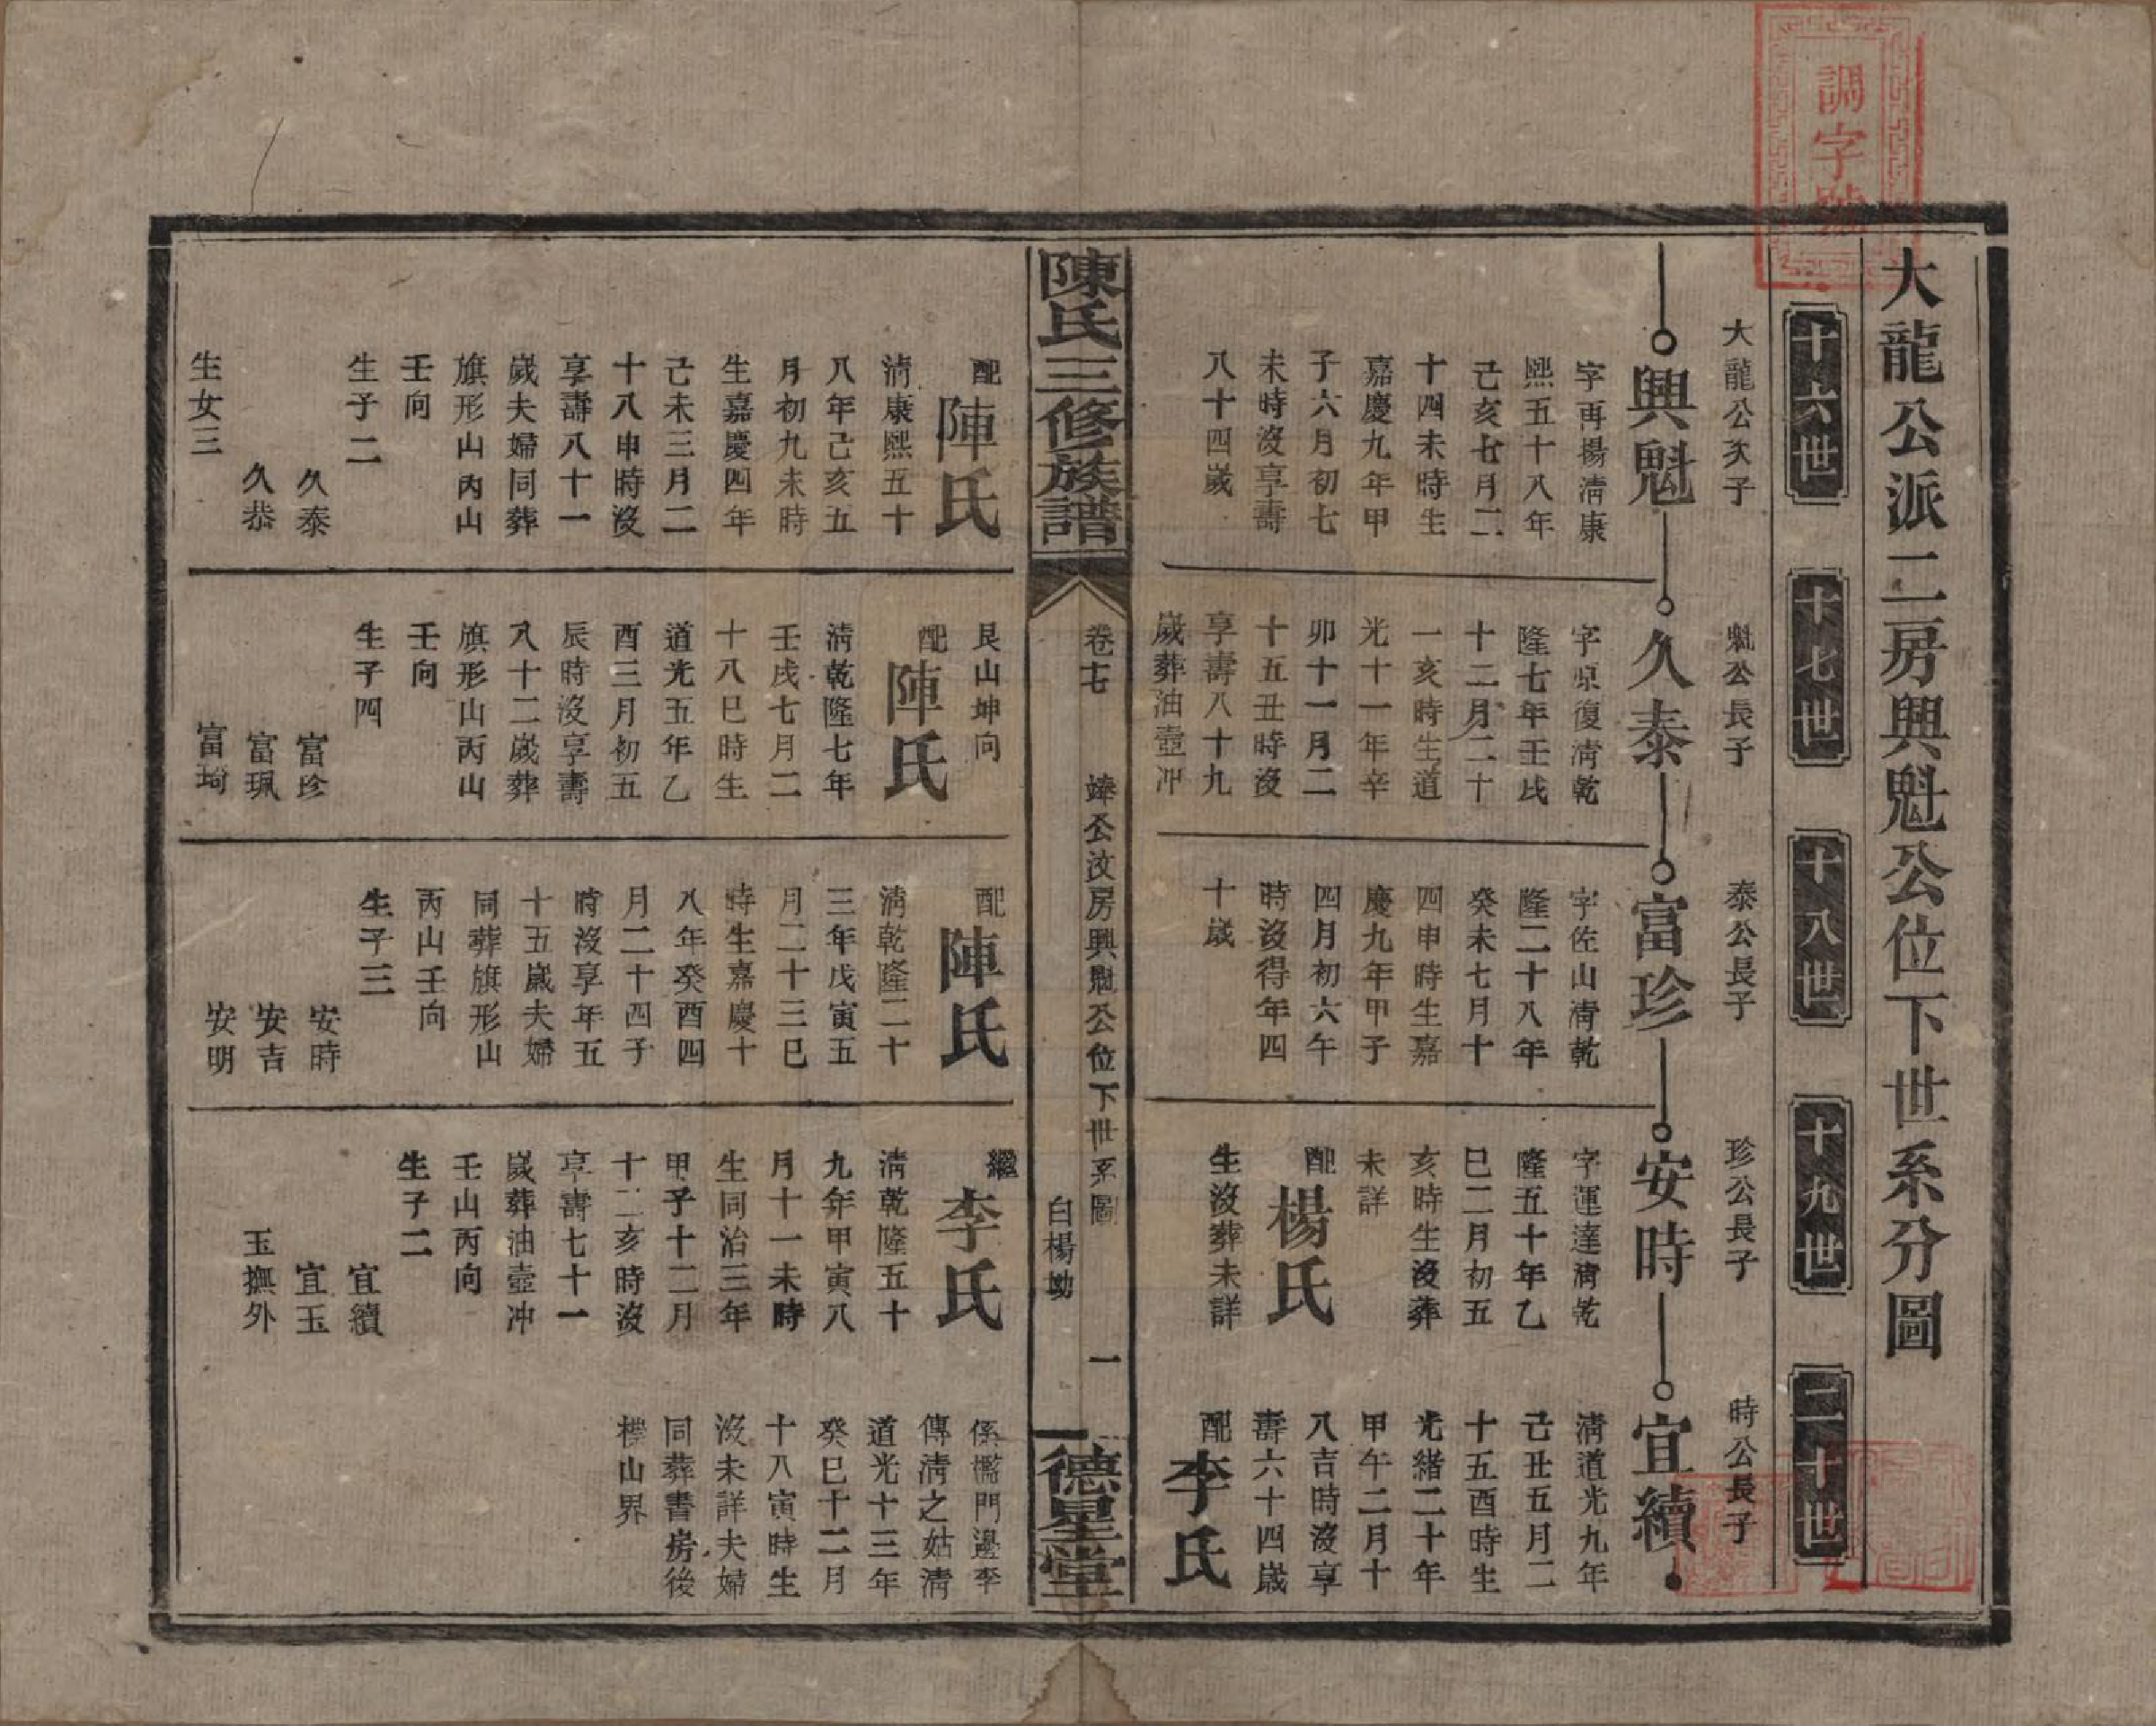 調字號
大龍公派二房興魁公位下世系分圖
十六世
十七世
十八世
十九世
二十世
大龍公次子
興魁
字再揚清康
熙五十八年
己亥七月二
十四未時生
嘉慶九年甲
子六月初七
未時沒享壽
八十四歲
配
陳氏
清康熙五十
八年己亥五
月初九未時
生嘉慶四年
己未三月二
十八申時沒
享壽八十一
歲夫婦同葬
旗形山丙山
壬向
生子二
久泰
久恭
生女三
魁公長子
久泰
字泉復清乾
隆七年壬戌
十二月二十
一亥時生道
光十一年辛
卯十一月二
十五丑時沒
享壽八十九
歲葬油壺冲
艮山坤向
配
陳氏
清乾隆七年
壬戌七月二
十八巳時生
道光五年乙
酉三月初五
辰時沒享壽
八十二歲葬
旗形山丙山
壬向
生子四
富珍
富珮
富琦
泰公長子
富珍
字佐山清乾
隆二十八年
癸未七月十
四申時生嘉
慶九年甲子
四月初六午
時沒得年四
十歲
配
陳氏
清乾隆二十
三年戊寅五
月二十三巳
時生嘉慶十
八年癸酉四
月二十四子
時沒享年五
十五歲夫婦
同葬旗形山
丙山壬向
生子三
安時
安吉
安明
珍公長子
安時
字運達清乾
隆五十年乙
巳二月初五
亥時生沒葬
未詳
配
楊氏
生沒葬未詳
繼
李氏
清乾隆五十
九年甲寅八
月十一未時
生同治三年
甲子十二月
十二亥時沒
享壽七十一
歲葬油壺冲
壬山丙向
生子二
宜續
宜玉
玉撫外
時公長子
宜續
清道光九年
己丑五月二
十五酉時生
光緒二十年
甲午二月十
八吉時沒享
壽六十四歲
配
李氏
係檻門邊李
傳清之姑清
道光十三年
癸巳十二月
十八寅時生
沒未詳夫婦
同葬書房後
山界
陳氏三修族譜
卷十七
公汶房興魁公位下世系圖
白楊坳
一
德星堂